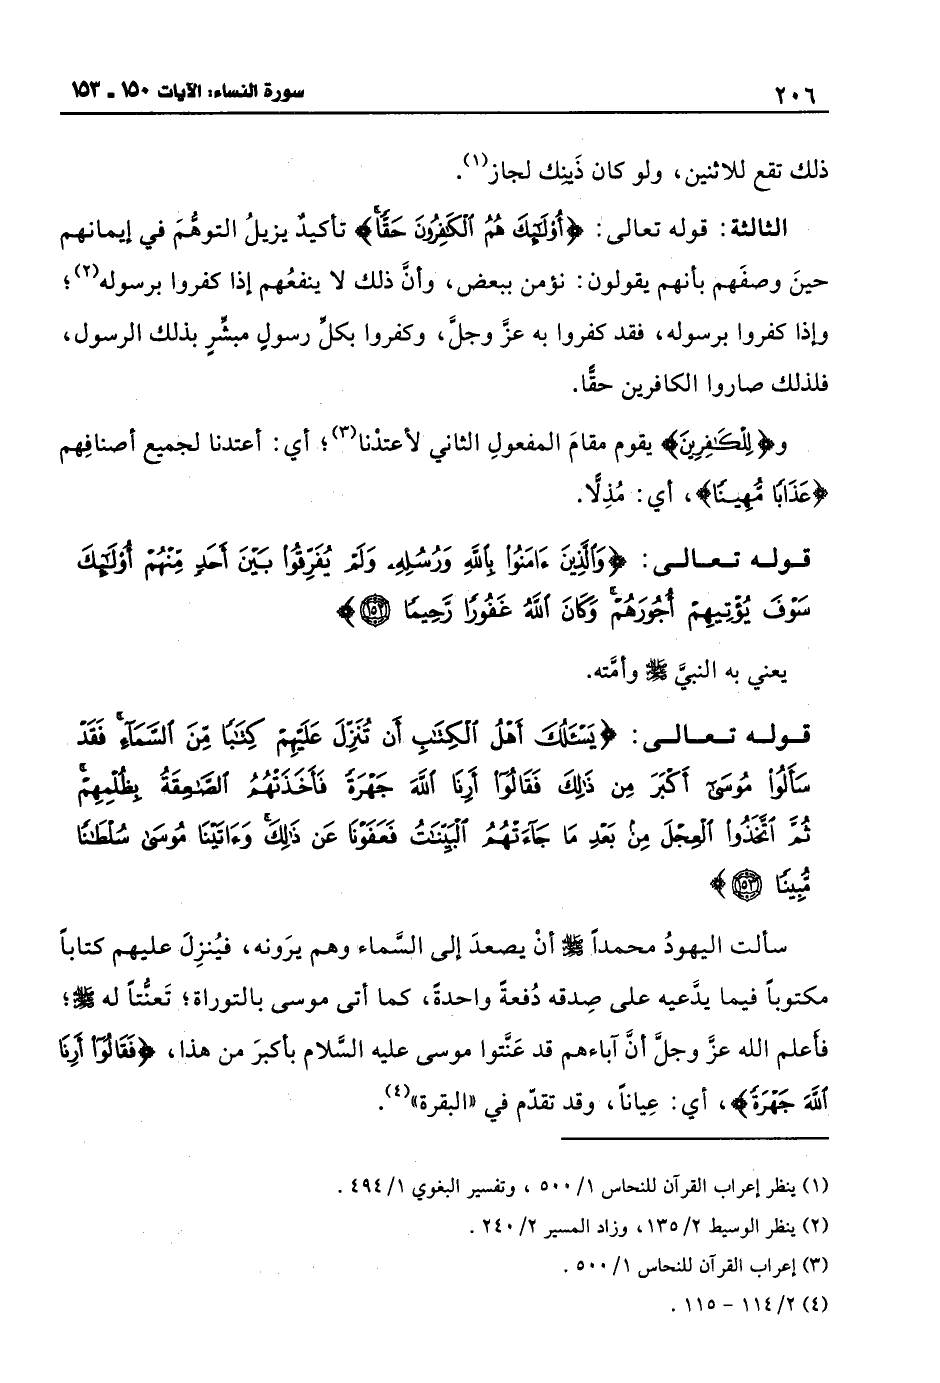 ٢٠٦ سورة النساء: الآيات ١٥٠ ـ ١٥٣
ذلك تقع للاثنين، ولو كان ذَينِك لجاز(١).
الثالثة: قوله تعالى: ﴿أُوْلَٰٓئِكَ هُمُ ٱلْكَٰفِرُونَ حَقًّاۚ﴾ تأكيدٌ يزيلُ التوهُّمَ في إيمانهم
حينَ وصفَهم بأنهم يقولون: نؤمن ببعض، وأنَّ ذلك لا ينفعُهم إذا كفروا برسوله(٢)؛
وإذا كفروا برسوله، فقد كفروا به عزَّ وجلَّ، وكفروا بكلِّ رسولٍ مبشِّرٍ بذلك الرسول،
فلذلك صاروا الكافرين حقًّا.
و﴿لِلْكَٰفِرِينَ﴾ يقوم مقامَ المفعولِ الثاني لأعتدْنا(٣)؛ أي: أعتدنا لجميع أصنافِهم
﴿عَذَابًا مُّهِينًا﴾، أي: مُذِلًّا.
قوله تعالى: ﴿وَٱلَّذِينَ ءَامَنُوا۟ بِٱللَّهِ وَرُسُلِهِۦ وَلَمْ يُفَرِّقُوا۟ بَيْنَ أَحَدٍ مِّنْهُمْ أُوْلَٰٓئِكَ
سَوْفَ يُؤْتِيهِمْ أُجُورَهُمْۚ وَكَانَ ٱللَّهُ غَفُورًا رَّحِيمًا ١٥٢﴾
يعني به النبيَّ ﷺ وأمَّته.
قوله تعالى: ﴿يَسْـَٔلُكَ أَهْلُ ٱلْكِتَٰبِ أَن تُنَزِّلَ عَلَيْهِمْ كِتَٰبًا مِّنَ ٱلسَّمَآءِۚ فَقَدْ
سَأَلُوا۟ مُوسَىٰٓ أَكْبَرَ مِن ذَٰلِكَ فَقَالُوٓا۟ أَرِنَا ٱللَّهَ جَهْرَةً فَأَخَذَتْهُمُ ٱلصَّٰعِقَةُ بِظُلْمِهِمْۚ
ثُمَّ ٱتَّخَذُوا۟ ٱلْعِجْلَ مِنۢ بَعْدِ مَا جَآءَتْهُمُ ٱلْبَيِّنَٰتُ فَعَفَوْنَا عَن ذَٰلِكَۚ وَءَاتَيْنَا مُوسَىٰ سُلْطَٰنًا
مُّبِينًا ١٥٣﴾
سألت اليهودُ محمداً ﷺ أنْ يصعدَ إلى السَّماء وهم يرَونه، فيُنزِلَ عليهم كتاباً
مكتوباً فيما يدَّعيه على صِدقه دُفعةً واحدةً، كما أتى موسى بالتوراة؛ تَعنُّتاً له ﷺ؛
فأعلم الله عزَّ وجلَّ أنَّ آباءهم قد عَنَّتوا موسى عليه السَّلام بأكبرَ من هذا، ﴿فَقَالُوٓا۟ أَرِنَا
ٱللَّهَ جَهْرَةً﴾، أي: عِياناً، وقد تقدّم في «البقرة»(٤).
(١) ينظر إعراب القرآن للنحاس ١/ ٥٠٠، وتفسير البغوي ١/ ٤٩٤.
(٢) ينظر الوسيط ٢/ ١٣٥، وزاد المسير ٢/ ٢٤٠.
(٣) إعراب القرآن للنحاس ١/ ٥٠٠.
(٤) ٢/ ١١٤ - ١١٥.